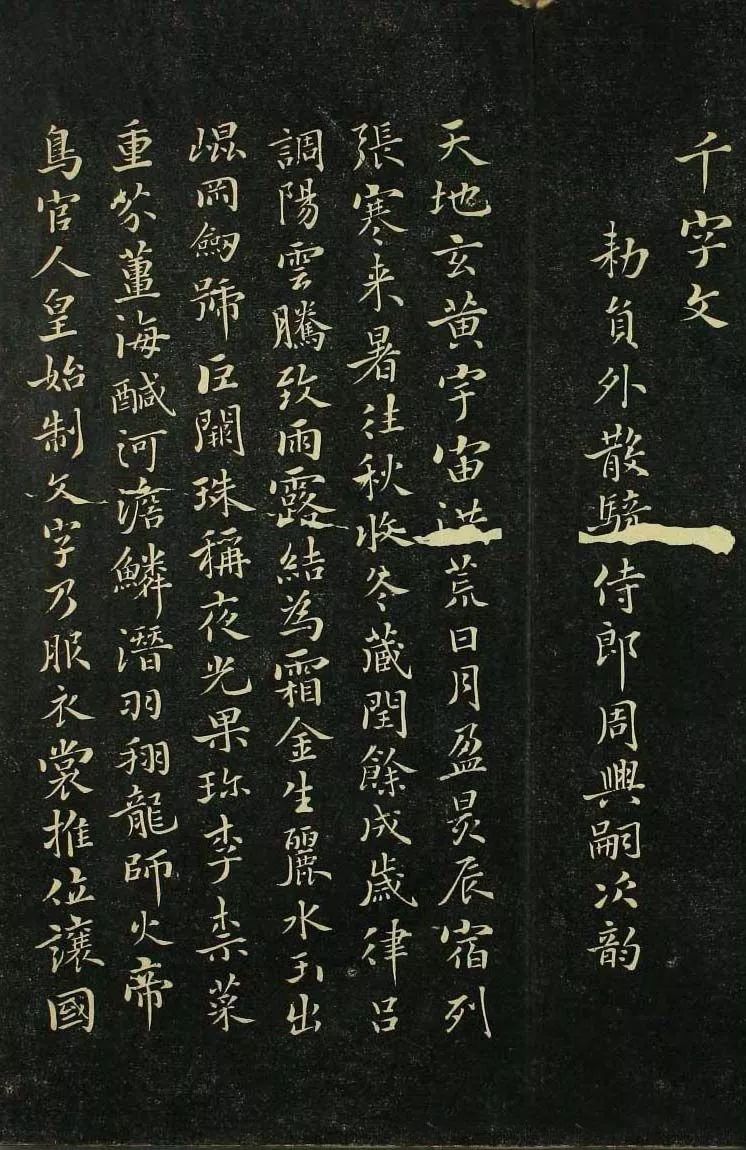 千字文
勑員外散騎侍郎周興嗣次韵
天地玄黃宇宙洪荒日月盈昃辰宿列
張寒来暑往秋收冬藏閏餘成歲律吕
調陽雲騰致雨露結為霜金生麗水玉出
崐岡劒號巨闕珠稱夜光果珎李柰菜
重芥薑海醎河澹鱗潛羽翔龍師火帝
鳥官人皇始制文字乃服衣裳推位讓國